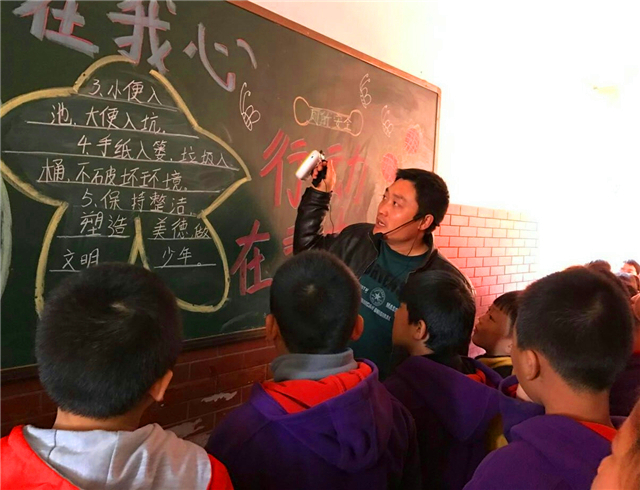 在我心
3.小便入
池,大便入坑,
4.手纸入篓,垃圾入
桶,不破坏环境.
5.保持整洁.
塑造 美德做
文明 少年。
行动
在